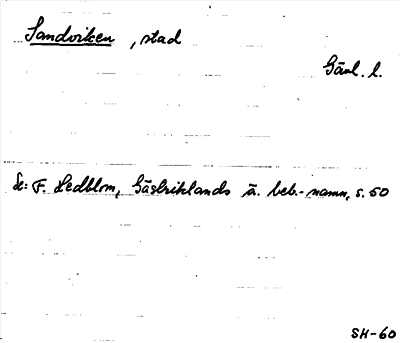 Sandviken, stad
Gävl. l.
Se: F. Hedblom, Gästriklands ä. beb.-namn, s. 50
SH-60